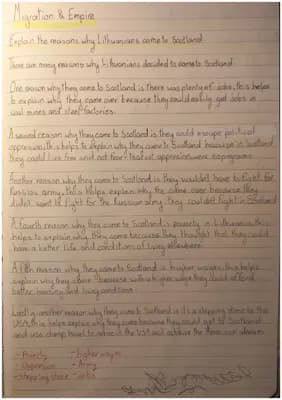 Migration & Empire
Explain the reasons why Lithuanians came to Scotland
There are many reasons why Lithuanians decided to come to Scotland
One reason why they came to Scotland is there was plenty of jobs, this helps
to explain why they came over because they could easily get jobs in
coal mines and steel factories.
A second reason why they came to Scotland is they could escape political
oppression, this helps to explain why they came to Scotland because in Scotland
they could live free and not fear
Another reason why they came to Scotland is they wouldn't have to fight for
Russian army, this helps explain why the came over because they
didn't want to fight for the Russian army
A fourth reason why they came to Scotland is poverty in Lithuania, this
helps to explain why they came because they thought that they could
have a better life and conditions of living elsewhere
A fifth reason why they came to Scotland is higher wages, this helps
explain why they came because with higher wages they could afford
better and living conditions
Lastly another reason why they came to Scotland is it's a stepping stone to the
USA, this helps explain why they came because they could get to Scotland
and use cheap travel to the USA and achieve the American dream
- Poverty - higher wages
- Oppression - Army
- Stepping stone - Jobs